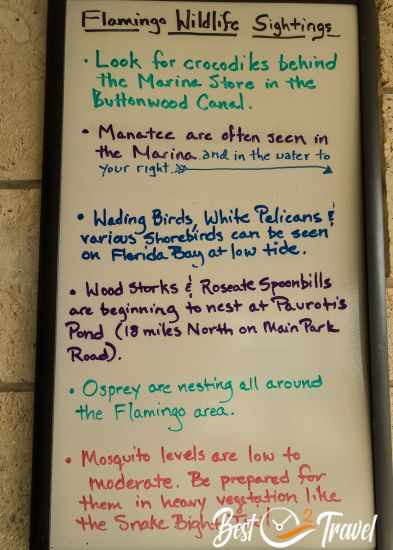 Flamingo Wildlife Sightings
• Look for crocodiles behind
the Marina Store in the
Buttonwood Canal.
• Manatee are often seen in
the Marina and in the water to
your right.
• Wading Birds, White Pelicans &
various shorebirds can be seen
on Florida Bay at low tide.
• Wood Storks & Roseate Spoonbills
are beginning to nest at Paurotis
Pond (18 miles North on Main Park
Road).
• Osprey are nesting all around
the Flamingo area.
• Mosquito levels are low to
moderate. Be prepared for
them in heavy vegetation like
the Snake Bight
Best 2 Travel